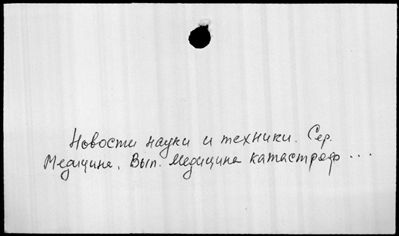 Новости науки и техники. Сер.
Медицина. Вып. Медицина катастроф...